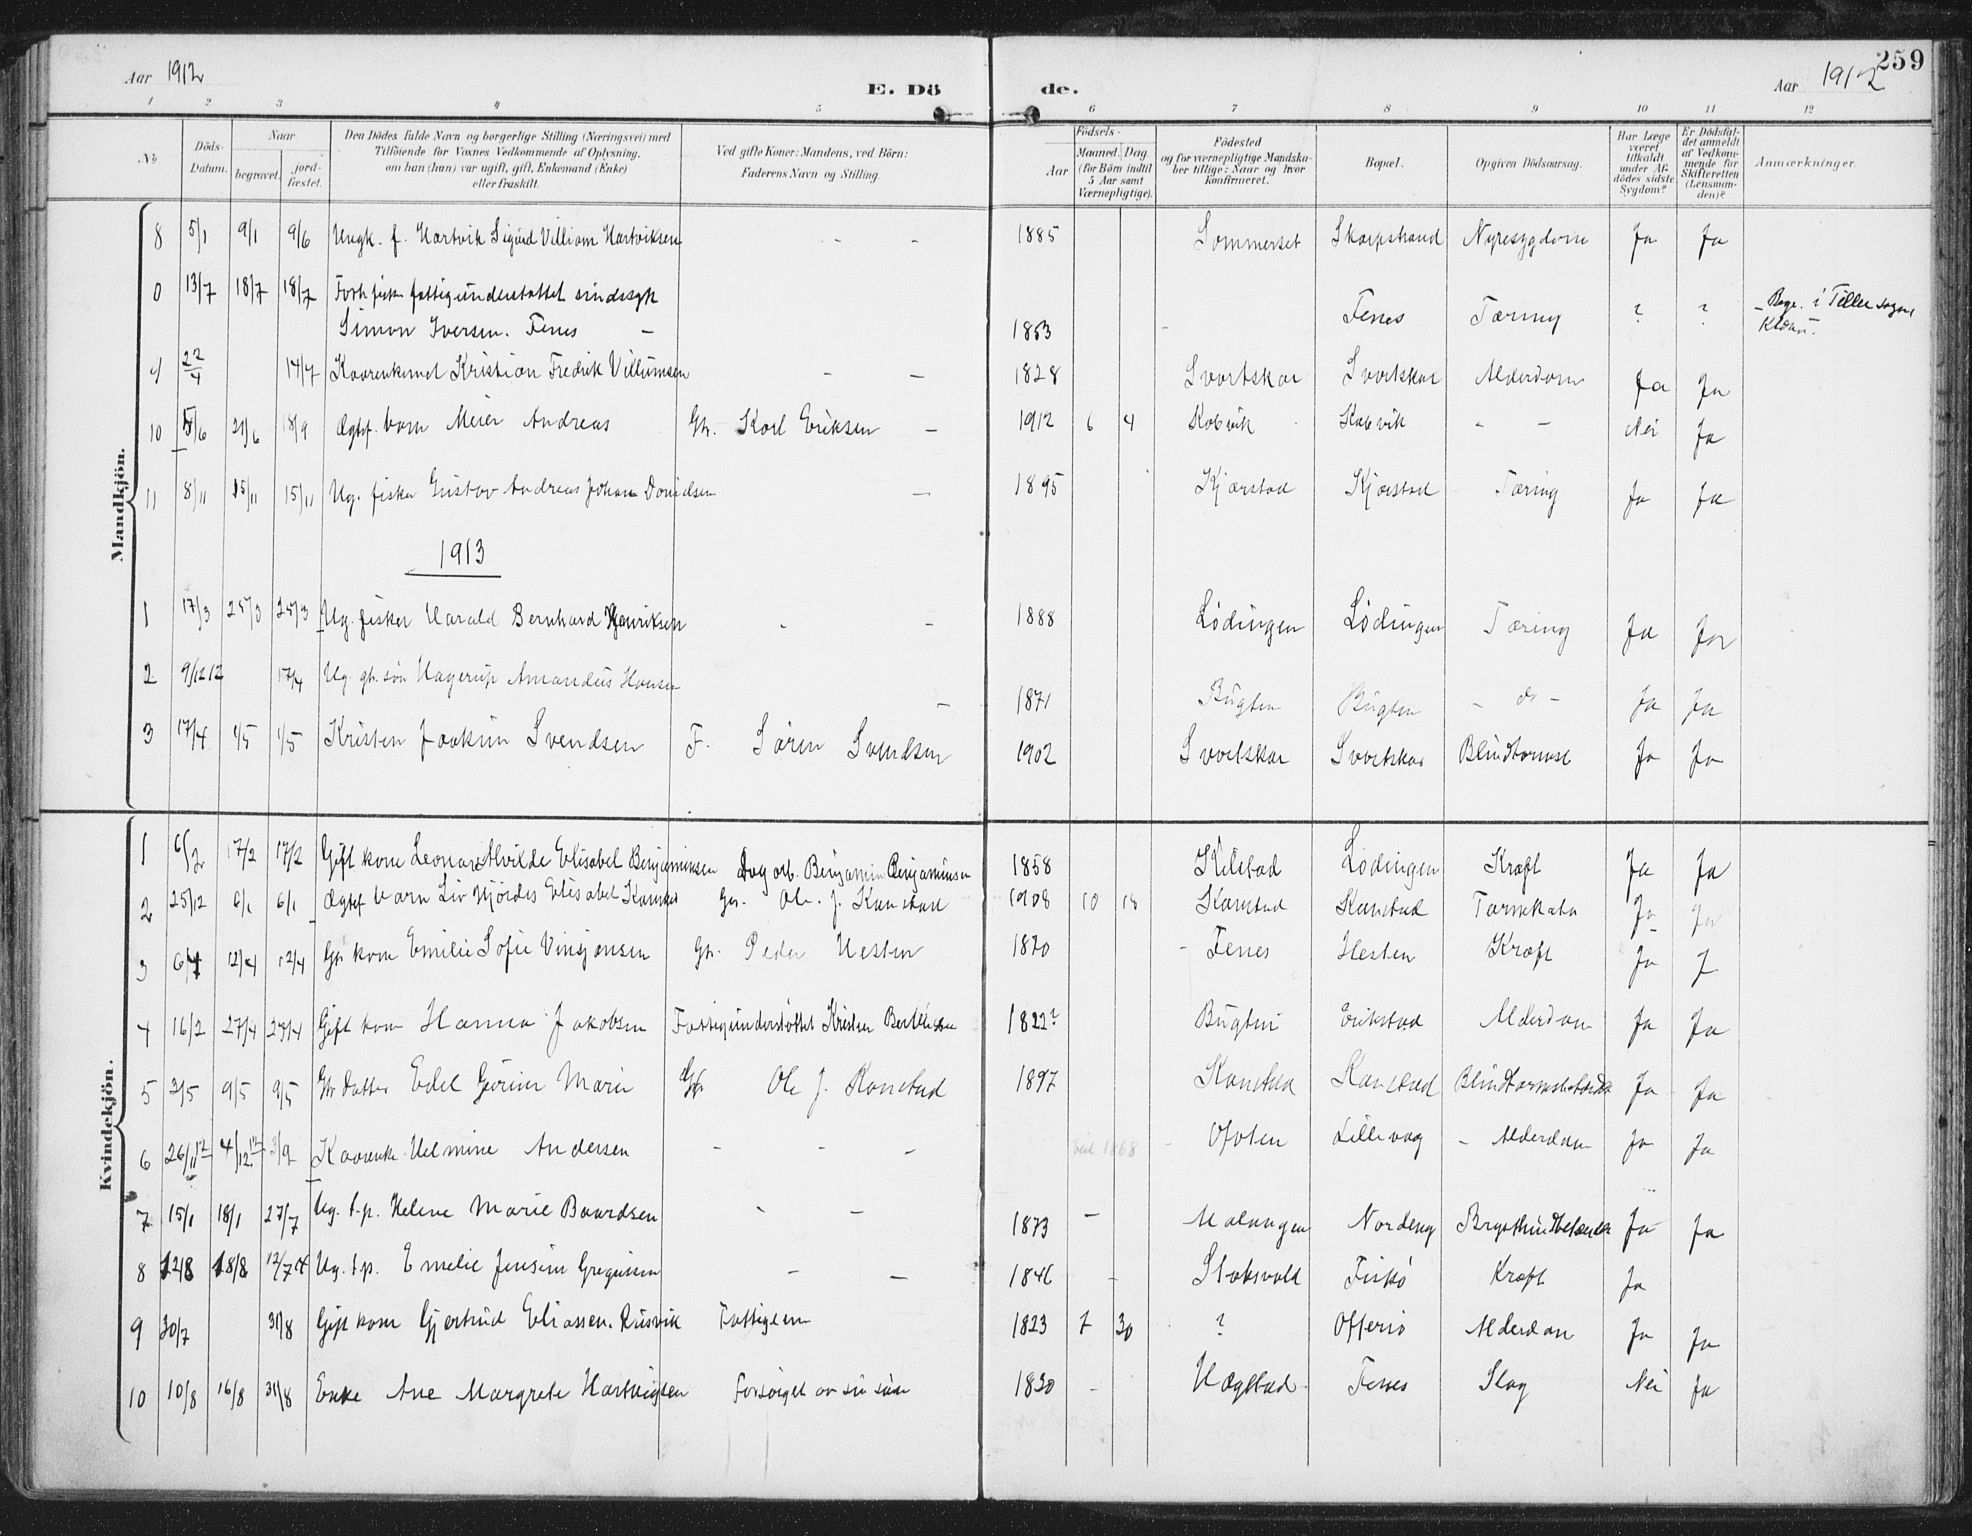 259
Aar 1912 E. Dö de. Aar 1912
1 2 3 4 5 6 7 8 9 10 11 12
No. Döds-Datum. Naar begravet. jord-fæstet. Den Dödes fulde Navn og borgerlige Stilling (Næringsvei) med Tilföiende for Voxnes Vedkommende af Oplysning, om han (hun) var ugift, gift, Enkemand (Enke) eller fraskilt. Ved gifte Koner: Mandens, ved Börn: Faderens Navn og Stilling. Födsels- Aar Maaned. Dag (for Börn indtil 5 Aar samt Værnepligtige). Födested og for værnepligtige Mandska-ber tillige: Naar og hvor konfirmeret. Bopæl. Opgiven Dödsaarsag. Har Læge været tilkaldt under Af-dödes sidste Sygdom? Er Dödsfal-det anmeldt af Vedkom-mende for Skifteretten (Lensman-den)? Anmærkninger.
Mandkjön.
8 5/1 9/1 9/6 Ungk. f. Hartvik Sigurd Villiam Hartviksen - - 1885 Sommerset Skarpstrand Nyresygdom Ja Ja
0 13/7 18/7 18/7 fattigunderstøttet sindssyk
Simon Iversen. Fenes - 1853 - Fenes Tæring ? ?
22/4 17/7 Kristian Fredrik Villumsen - - 1828 Svartskar Svartskar Alderdom Ja Ja
10 21/6 18/9 Ægtef. barn Meier Andreas Gr. Karl Eriksen - 1912 6 4 Kobvik Kobvik - - Nei Ja
11 8/11 15/11 15/11 Ug. fisker Gustav Andreas Johan Danielsen - 1895 Kjærstad Kjærstad Tæring Ja Ja
1913
1 17/3 25/3 25/3 Ug. fisker Harald Bernhard Henriksen - - 1888 Lødingen Lødingen Tæring Ja Ja
2 9/12 12 17/4 Ug. gr. søn Hagerup Amandus Hansen - 1871 Bugten Bugten - do - Ja Ja
3 17/4 1/5 1/5 Kristen Joakim Svendsen F. Søren Svendsen 1902 Svartskar Svartskar Blindtarmsb Ja Ja
Kvindekjön.
1 6/2 17/2 17/2 Gift kone Leonar Alvilde Elisabet Benjaminsen Dag arb. Benjamin Benjaminsen 1858 Kilstad Lødingen Kræft Ja Ja
2 25/12 6/1 6/1 Ægtef barn Liv Hjørdis Elisabet Kanstad Gr. Ole J. Kanstad 1908 10 18 Kanstad Kanstad Tarmkatar Ja Ja
3 6/4 12/4 12/4 Gr kone Emilie Sofie Vinsjansen Gr. Peder Hesten 1870 - Fenes Hesten Kræft Ja J
4 16/2 27/4 27/4 Gift kone Hanna Jakobsen Fattigunderstøttet Kristen Berthesen 1822? Bugten Erikstad Alderdom Ja Ja
5 2/5 9/5 9/5 Gr Datter Edel Gurine Marie Gr. Ole J. Kanstad 1897 Kanstad Kanstad Ja Ja
6 26/11 12 4/12 12 3/9 Kaarenke Helmine Andersen - - - 1868 - Ofoten Lillevag - Alderdom Ja Ja
7 15/1 18/1 27/7 Ug. t.p. Helene Marie Baardsen - - 1873 - Malangen Nordeng Brysthindebetændelse Ja Ja
8 12/8 18/8 12/7 14 Ug. t.p. Emelie Jensine Gregussen - - 1846 - Stoksvold Fiskø Kræft Ja
9 30/7 31/8 Gift kone Gjertrud Eliassen. Rusvik Fattiglem 1823 7 30 ? Offersø Alderdom Ja Ja
10 10/8 16/8 31/8 Enke Ane Margrete Hartvigsen Forsørget av sin søn 1830 - Hægstad Fenes Slag Nei Ja